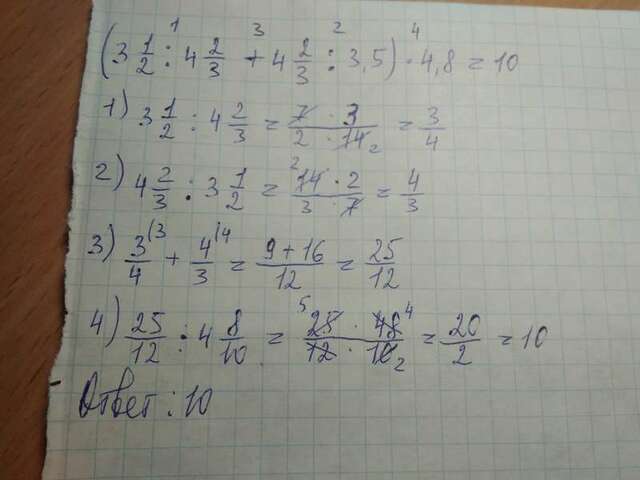 (3 1/2 : 4 2/3 + 4 2/3 : 3,5) · 4,8 = 10
1) 3 1/2 : 4 2/3 = 7 · 3 / 2 · 14 2 = 3/4
2) 4 2/3 : 3 1/2 = 2 14 · 2 / 3 · 7 = 4/3
3) 3/4 |3 + 4/3 |4 = 9 + 16 / 12 = 25/12
4) 25/12 : 4 8/10 = 5 25 · 48 4 / 12 · 10 2 = 20/2 = 10
Ответ: 10